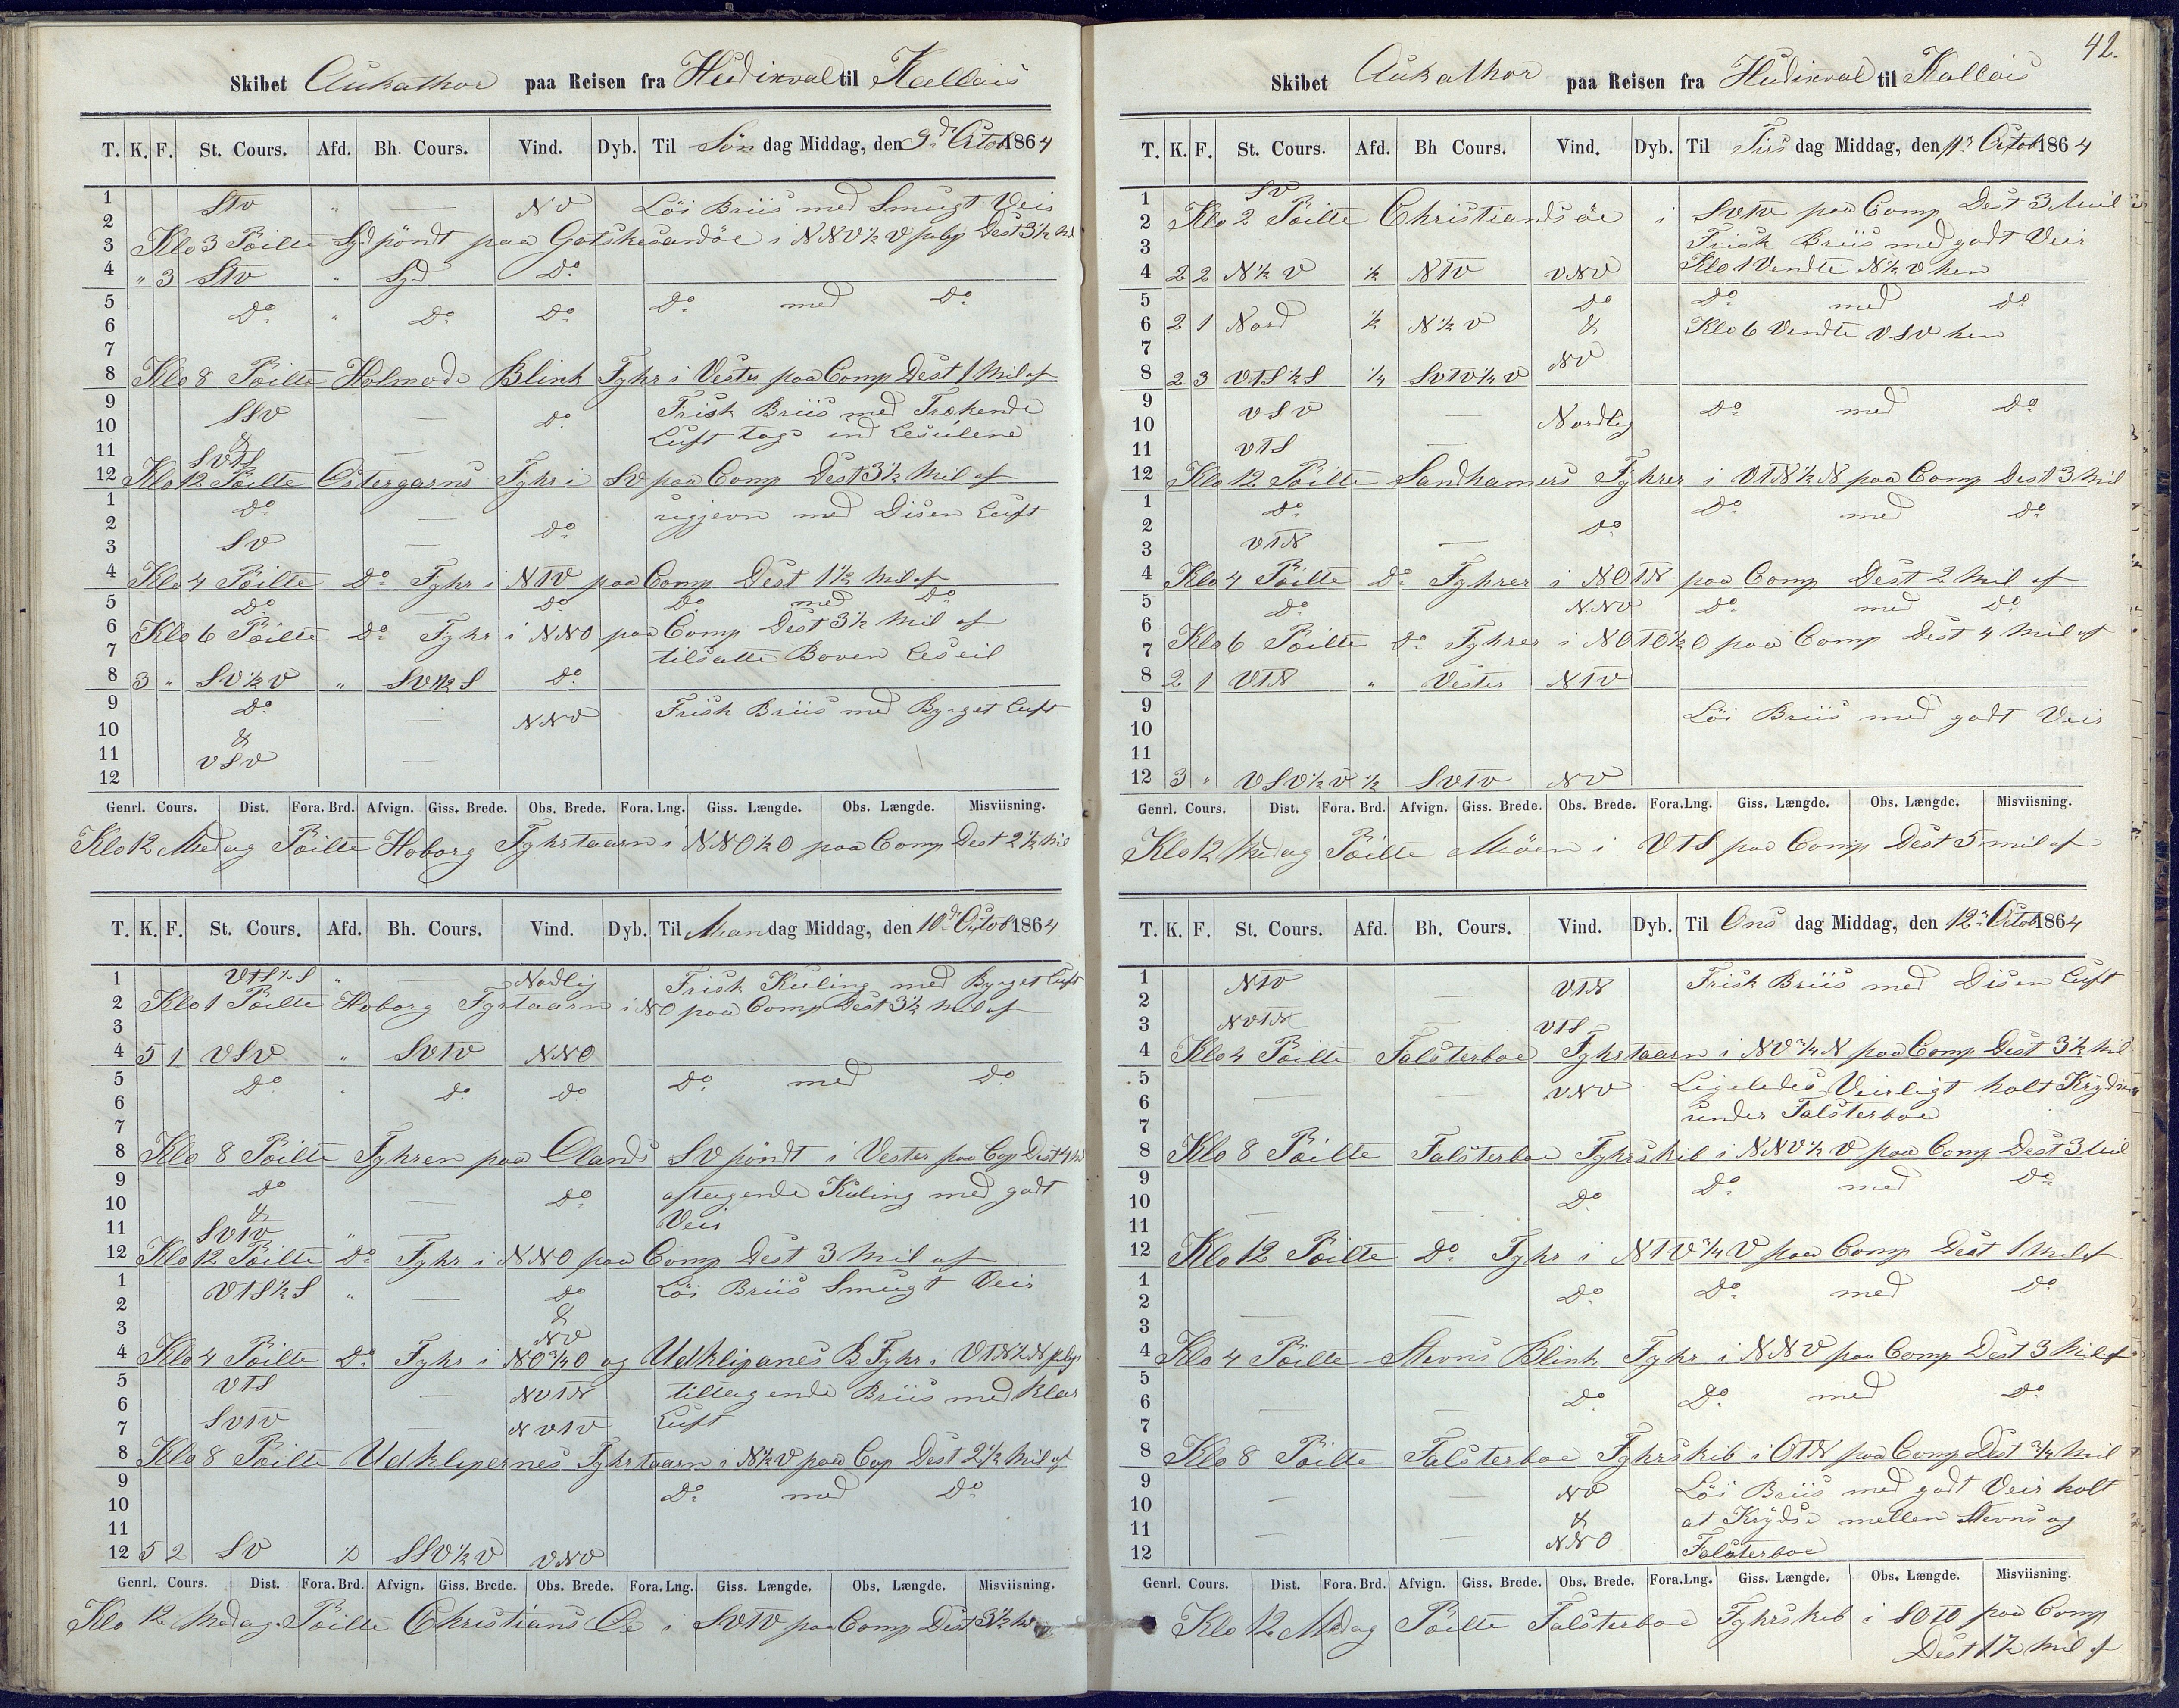 Skibet Aukathor paa Reisen fra Hudikval til Kallais
T. K. F. St. Cours. Afd. Bh. Cours. Vind. Dyb. Til Søn dag Middag, den 9de Octob 1864
1 StV " — NV Löi Briis med Smugt Veir
2
3 Klo 3 Pöilte Syd pöndt paa Gotskesandöe i NNV½V pCp Dest 3½ Mil
4 " 3 StV " Syd Do
5 Do " Do Do Do med Do
6
7
8 Klo 8 Pöilte Holmode Blink Fyhr i Vester paa Comp Dest 1 Mil af
9 SSV — Do Frisk Briis med Trækende
10 & Luft tog ind Leseilene
11 SVtS —
12 Klo 12 Pöilte Östergarns Fyhr i SV paa Comp Dest 3½ Mil af
1 Do — med Disen Luft
2 Do
3 SV —
4 Klo 4 Pöilte Do Fyhr i NtV paa Comp Dest 1½ Mil af
5 Do Do Do med Do
6 Klo 6 Pöilte Do Fyhr i NNO paa Comp Dest 3½ Mil af
7 tilsatte Boven Leseil
8 3 " SV½V " SV½S Do
9 Do — NNV Frisk Briis med Byrget Luft
10 &
11 VSV —
12
Genrl. Cours. Dist. Fora. Brd. Afvign. Giss. Brede. Obs. Brede. Fora. Lng. Giss. Længde. Obs. Længde. Misviisning.
Klo 12 Medag Pöilte Hoborg Fyhrstaarn i NNO½O paa Comp Dest 2½ Mil
T. K. F. St. Cours. Afd. Bh. Cours. Vind. Dyb. Til Man dag Middag, den 10de Octob 1864
1 VtS½S " — Nordlig Frisk Kuling med Byrget Luft
2 Klo 1 Pöilte Hoborg Fyrtaarn i NO paa Comp Dest 3½ Mil af
3
4 5 1 VSV " SVtV NNO
5 Do " Do Do Do med Do
6
7
8 Klo 8 Pöilte Fyhren paa Olands SV pöndt i Vester paa Cop Dist 4 Mil
9 Do — Do aftagende Kuling med godt
10 & Veir
11 SVtV " —
12 Klo 12 Pöilte Do Fyhr i NNO paa Comp Dest 3 Mil af
1 VtS½S " — Do Löi Briis Smugt Veir
2 &
3 NV
4 Klo 4 Pöilte Do Fyhr i NO¾O og Udklipanes B Fyhr i VtN½N pCp
5 VtS — NVtN tiltagende Briis med Klar
6 Luft
7 SVtV — NVtV
8 Klo 8 Pöilte Udklipernes Fyhrtaarn i N½V paa Cop Dest 2½ Mil af
9 Do med Do
10
11
12 5 2 SV ½ SSV½V VNV
Genrl. Cours. Dist. Fora. Brd. Afvign. Giss. Brede. Obs. Brede. Fora. Lng. Giss. Længde. Obs. Længde. Misviisning.
Klo 12 Medag Pöilte Christians Öe i SVtV paa Comp Dest 3½ Mil
42.
Skibet Aukathor paa Reisen fra Hudikval til Kallais
T. K. F. St. Cours. Afd. Bh Cours. Vind. Dyb. Til Tirs dag Middag, den 11te Octob 1864
1 SV
2 Klo 2 Pöilte Christiandsöe i SVtV paa Comp Dest 3 Mil
3 Frisk Briis med godt Veir
4 2 2 N½V ½ NtV VNV Klo 1 Vendte N½V hen
5 Do Do med Do
6 2 1 Nord ½ N½V & Klo 6 Vendte VSV hen
7 NV
8 2 3 VtS½S ¼ SVtV¼V
9 VSV — Do med Do
10 Nordlig
11 VtS —
12 Klo 12 Pöilte Sandhamers Fyhrer i VtN½N paa Comp Dest 3 Mil
1 Do Do med Do
2 Do
3 VtN —
4 Klo 4 Pöilte Do Fyhrer i NOtN paa Comp Dest 2 Mil af
5 Do NNV Do med Do
6
7 Klo 6 Pöilte Do Fyhrer i NOtO½O paa Comp Dest 4 Mil af
8 2 1 VtN " Vester NtV
9 Löi Briis med godt Veir
10
11
12 3 " VSV½V ½ SVtV NV
Genrl. Cours. Dist. Fora. Brd. Afvign. Giss. Brede. Obs. Brede. Fora.Lng. Giss. Længde. Obs. Længde. Misviisning.
Klo 12 Medag Pöilte Möen i VtS paa Comp Dest 5 mil af
T. K. F. St. Cours. Afd. Bh. Cours. Vind. Dyb. Til Ons dag Middag, den 12te Octob 1864
1 NtV — VtN Frisk Briis med Disen Luft
2
3 NVtN — VtS
4 Klo 4 Pöilte Falsterboe Fyhrstaarn i NV¾N paa Comp Dest 3½ Mil
5 — — VNV Ligeledes Veirligt holt Krydsen
6 under Falsterboe
7
8 Klo 8 Pöilte Falsterboe Fyhrskib i NNV½V paa Comp Dest 3 Mil
9 Do med Do
10 — — Do
11
12 Klo 12 Pöilte Do Fyhr i NtV¾V paa Comp Dest 1 Mil af
1 Do Do med Do
2 — —
3
4 Klo 4 Pöilte Stevns Blink Fyhr i NNV paa Comp Dest 3 Mil af
5
6 — — Do Do med Do
7
8 Klo 8 Pöilte Falsterboe Fyhrskib i OtN paa Comp Dest ¾ Mil
9 Löi Briis med godt Veir holt
10 — — NV at Krydse mellem Stevns og
11 — — & Falsterboe
12 NNO
Genrl. Cours. Dist. Fora. Brd. Afvign. Giss. Brede. Obs. Brede. Fora.Lng. Giss. Længde. Obs. Længde. Misviisning.
Klo 12 Medag Pöilte Falsterboe Fyhrskib i SOtO paa Comp
Dest 1½ Mil af